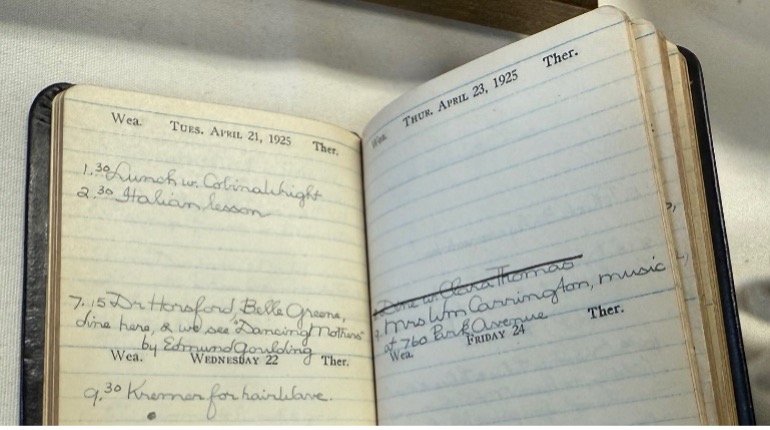 Wea. TUES. APRIL 21, 1925 Ther.
1.30 Lunch w. Cobina Wright
2.30 Italian lesson
7.15 Dr Horsford, Belle Greene,
dine here, & we see "Dancing Mothers"
by Edmund Goulding
Wea. WEDNESDAY 22 Ther.
9.30 Kremer for hair Wave.
Wea. THUR. APRIL 23, 1925 Ther.
Dine w. Clara Thomas
Mrs Wm Carrington, music
at 760 Park Avenue
Wea. FRIDAY 24 Ther.